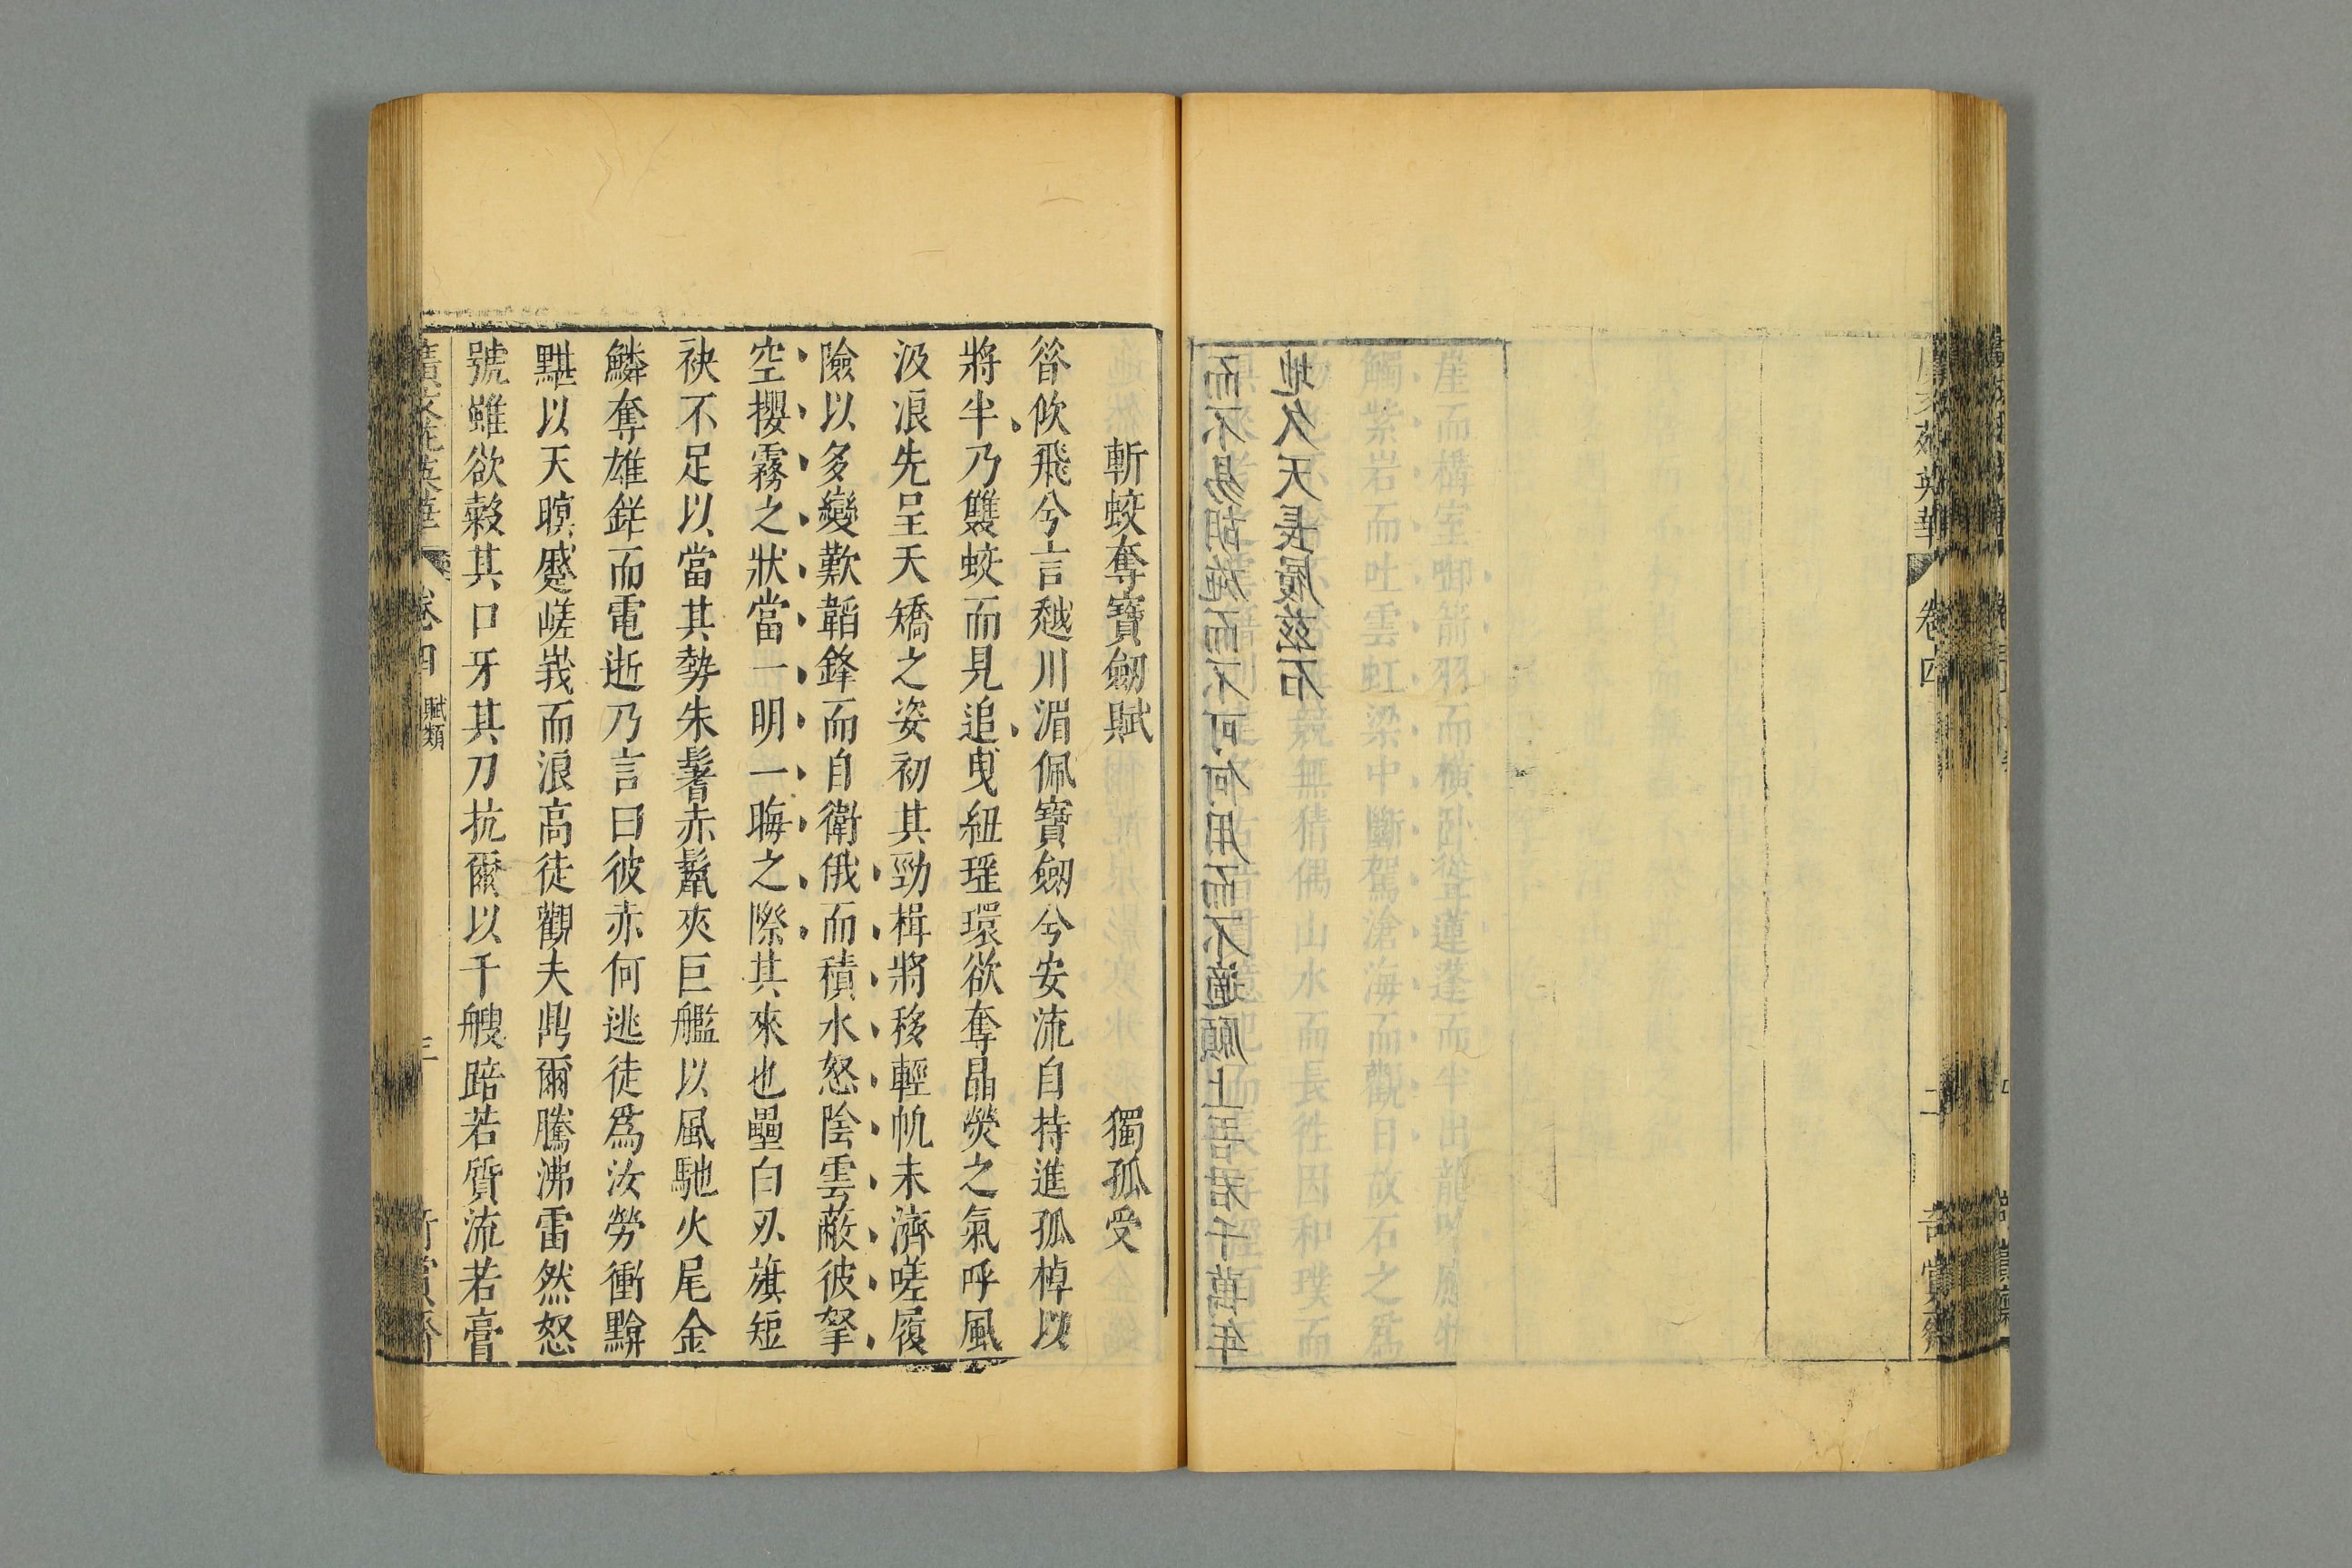 廣文苑英華 卷四 二 奇賞齋
地久天長履茲石
而不易胡施而不可何用而不適願上吾君千萬年
斬蛟奪寶劒賦 獨孤受
昝佽飛兮言越川湄佩寶劒兮安流自持進孤棹以
將半乃雙蛟而見追曳紐環欲奪晶熒之氣呼風
汲浪先呈天矯之姿初其勁楫將移輕帆未濟嗟履
險以多變歎韜鋒而自衛俄而積水怒陰雲蔽彼拏
空攖霧之狀當一明一晦之際其來也壘白刃旗短
袂不足以當其勢朱鬐赤鬣夾巨艦以風馳火尾金
鱗奪雄鋩而電逝乃言曰彼亦何逃徒爲汝勞衝黭
黮以天暝蹙嵯峩而浪高徒觀夫鼎爾騰沸雷然怒
號雖欲其口牙其刀抗爾以千艘踣若質流若膏
廣文苑英華 卷四 賦類 三 奇賞齋